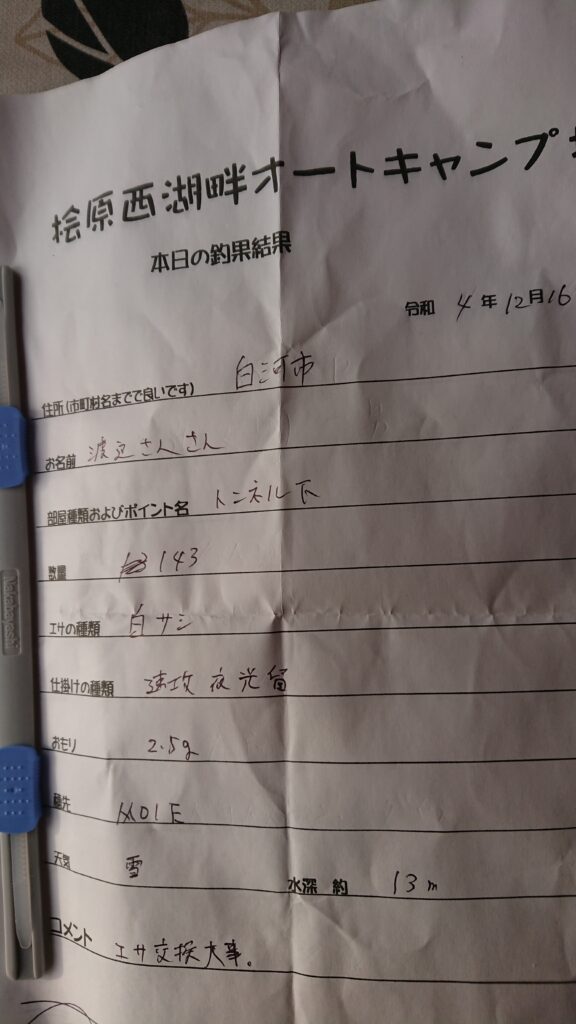 桧原西湖畔オートキャンプ
本日の釣果結果
令和 4年12月16
住所(市町村名までで良いです) 白河市
お名前 渡辺さんさん
部屋種類およびポイント名 トンネル下
数量 143
エサの種類 白サシ
仕掛けの種類 速攻 夜光留
おもり 2.5g
穂先 M01E
天気 雪 水深 約 13m
コメント エサ交換大事。
Nakabayashi